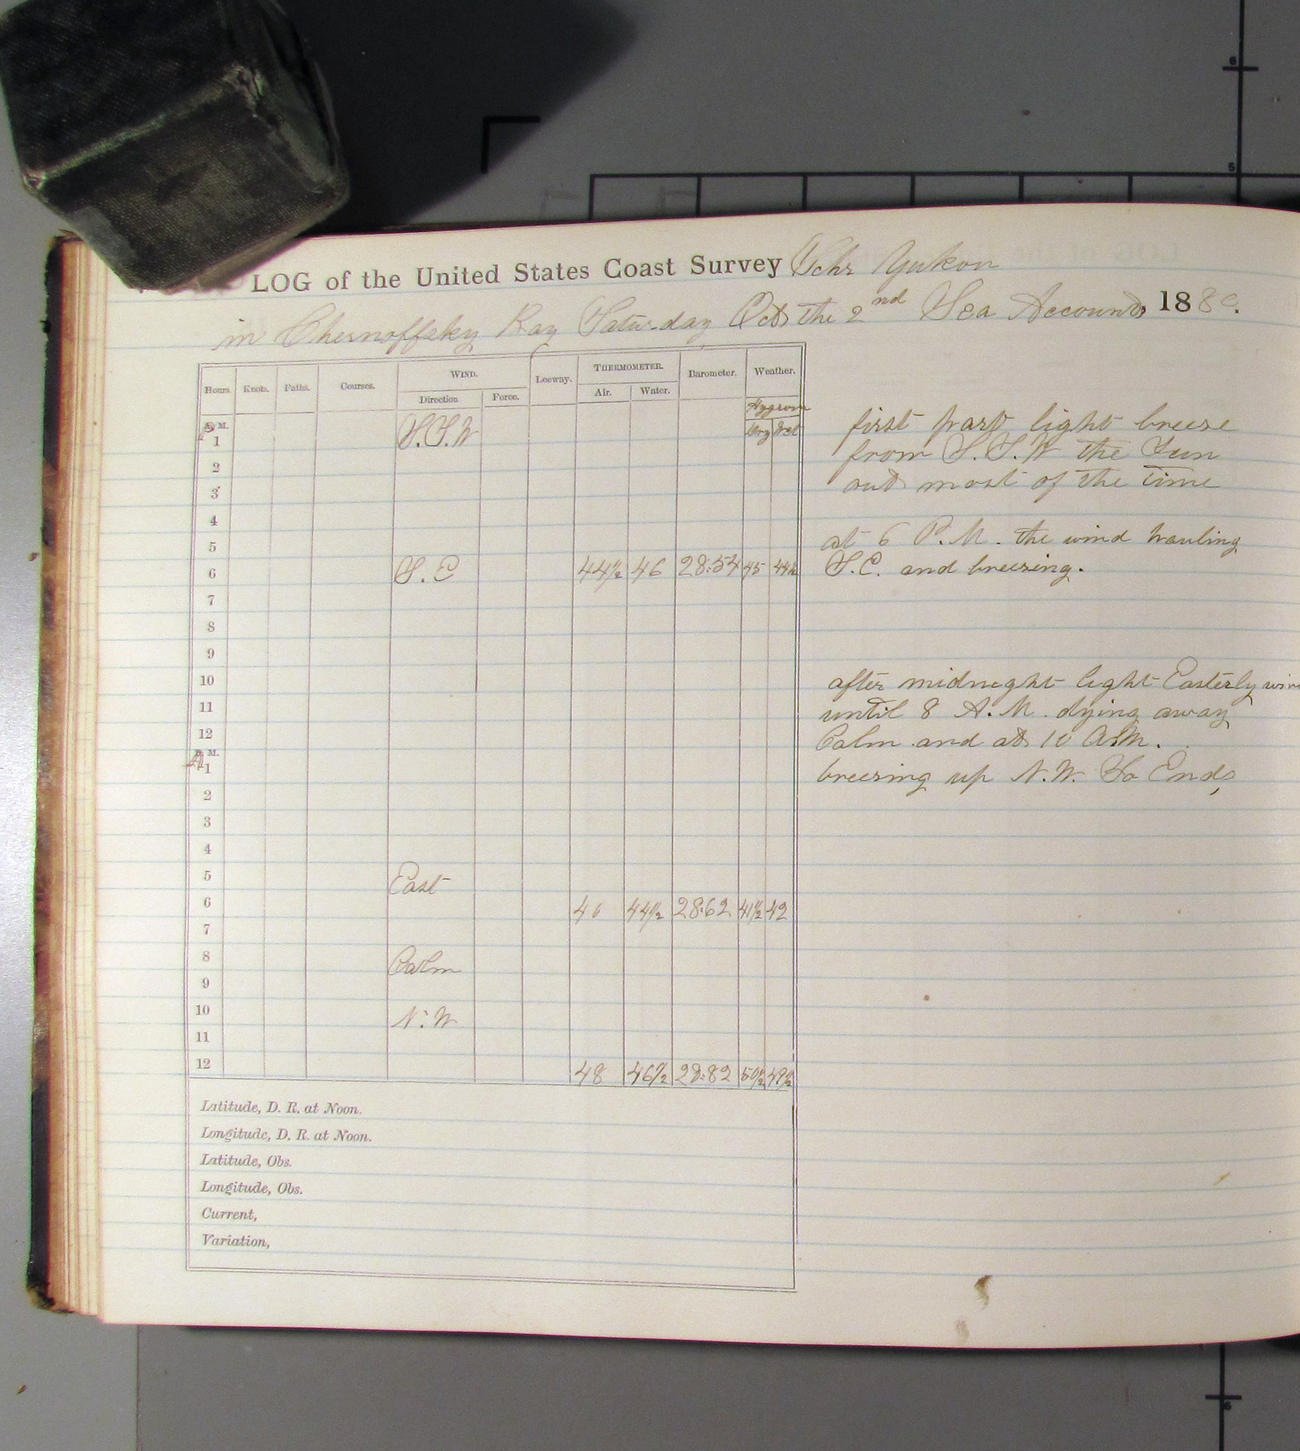 LOG of the United States Coast Survey Schr Yukon
in Chernoffsky Bay Saturday Oct the 2nd Sea Account, 1880.
Hours. Knots. Faths. Courses. WIND. Leeway. THERMOMETER. Barometer. Weather.
Direction Force. Air. Water.
Hygrom
P M. Dry Wet
1 S.S.W
2
3
4
5
6 S.E 44½ 46 28:54 45 44½
7
8
9
10
11
12
A M.
1
2
3
4
5 East
6 46 44½ 28:62 41½ 42
7
8 Calm
9
10 N:W
11
12 48 46½ 28:82 50½ 49½
Latitude, D. R. at Noon.
Longitude, D. R. at Noon.
Latitude, Obs.
Longitude, Obs.
Current,
Variation,
first part light breese
from S.S.W the Sun
out most of the time
at 6 P.M. the wind hauling
S.E. and breesing.
after midnight light Easterly win
until 8 A.M. dying away
Calm and at 10 A.M.
breesing up N.W. So Ends,
6
5
6